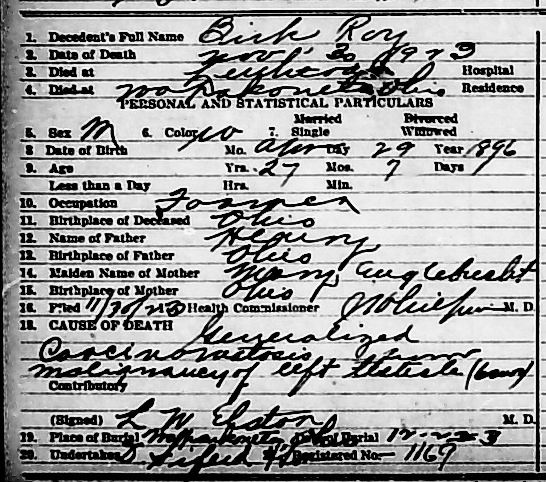 1. Decedent's Full Name Birk Roy
2. Date of Death Nov 30 1923
3. Died at Hospital
4. Died at Wapakoneta Ohio Residence
PERSONAL AND STATISTICAL PARTICULARS
5. Sex M 6. Color W 7. Married Single Divorced Widowed
8 Date of Birth Mo. Apr Day 29 Year 1896
9. Age Yrs. 27 Mos. 7 Days 1
Less than a Day Hrs. Min.
10. Occupation Farmer
11. Birthplace of Deceased Ohio
12. Name of Father Henry
13. Birthplace of Father Ohio
14. Maiden Name of Mother Mary
15. Birthplace of Mother Ohio
16. Filed 11/30/23 Health Commissioner M. D.
18. CAUSE OF DEATH Generalized
Carcinomatosis from
malignancy of left testicle
Contributory
(Signed) L W Elston M. D.
19. Place of Burial Wapakoneta Burial 12-2-23
20. Undertaker Registered No. 1169